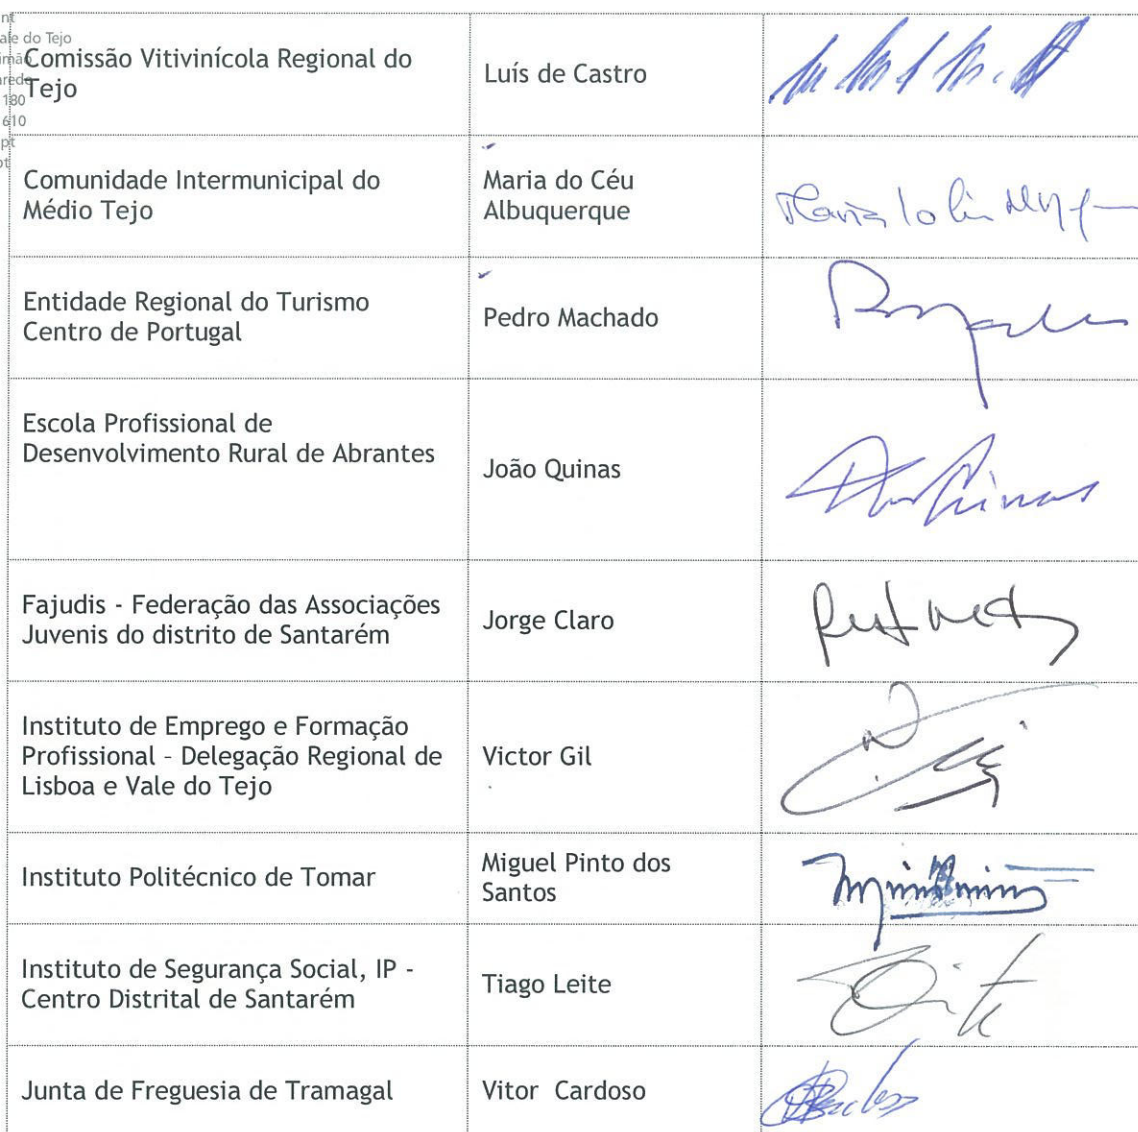 ale do Tejo
180
610
pt
Comissão Vitivinícola Regional do
Tejo
Luís de Castro
Comunidade Intermunicipal do
Médio Tejo
Maria do Céu
Albuquerque
Entidade Regional do Turismo
Centro de Portugal
Pedro Machado
Escola Profissional de
Desenvolvimento Rural de Abrantes
João Quinas
Fajudis - Federação das Associações
Juvenis do distrito de Santarém
Jorge Claro
Instituto de Emprego e Formação
Profissional – Delegação Regional de
Lisboa e Vale do Tejo
Victor Gil
Instituto Politécnico de Tomar
Miguel Pinto dos
Santos
Instituto de Segurança Social, IP -
Centro Distrital de Santarém
Tiago Leite
Junta de Freguesia de Tramagal
Vitor Cardoso